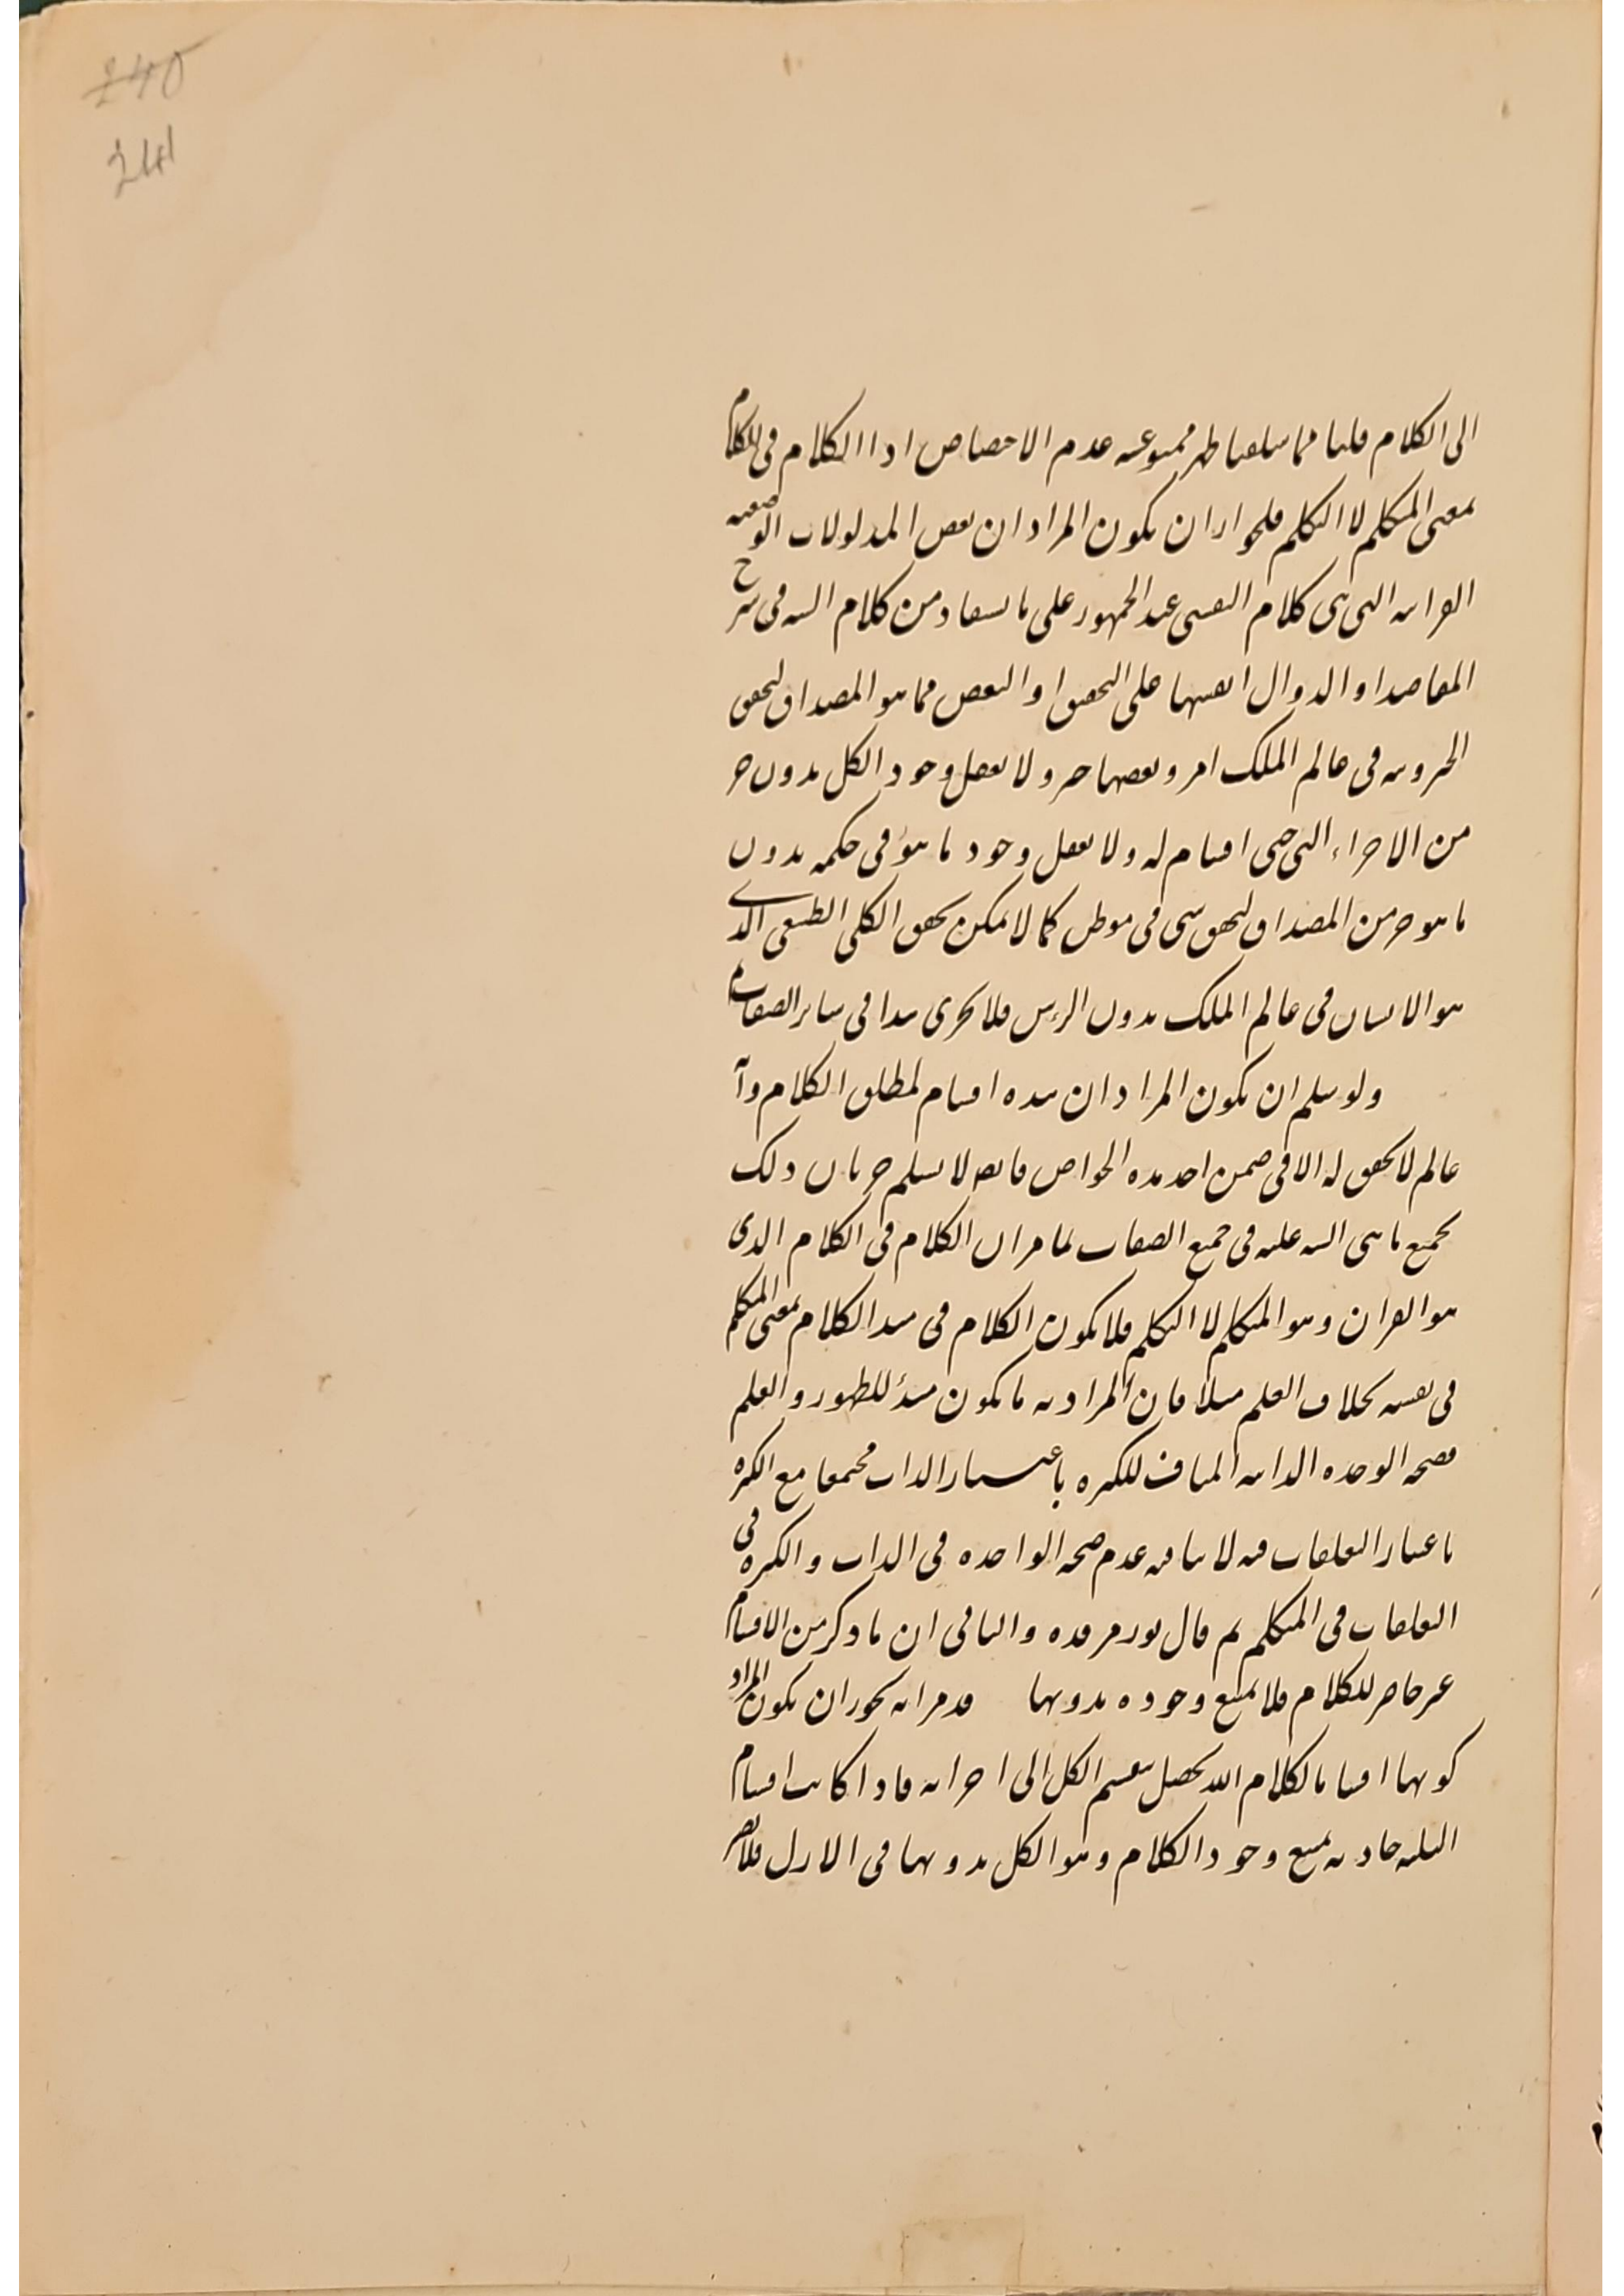 240
241
الى الكلام قلنا مما تلقينا ظهر ممنوعية عدم الاختصاص اذ الكلام فى الكلام
بمعنى المتكلم لا التكلم فلجواز ان يكون المراد ان بعض المدلولات الوضعية
القرآنية التى هى كلام النفسى عند الجمهور على ما يستفاد من كلام السيد فى شرح
المقاصد او الدوال انفسها على التحقيق او البعض مما هو المصداق لتحقق
الحروف فى عالم الملك امر وبعضها خبر ولا يعقل وجود الكل بدون جزء
من الاجزاء التى هى اقسام له ولا يعقل وجود ما هو فى حكمه بدون
ما هو جزء من المصداق لتحقق شى فى موطن كما لا يمكن تحقق الكلى الطبعى الذى
هو الانسان فى عالم الملك بدون الرأس فلا يجرى هذا فى سائر الصفات
ولو سلم ان يكون المراد ان هذه اقسام لمطلق الكلام و
عالم لا تحقق له الا فى ضمن احد هذه الخواص فانه لا يسلم جريان ذلك
بجميع ما هى عليه فى جميع الصفات لما مر ان الكلام فى الكلام الذى
هو القران وهو المتكلم لا التكلم فلا يكون الكلام فى هذا الكلام بمعنى المتكلم
فى نفسه بخلاف العلم مثلا فان المراد به ما يكون مبدأ للظهور والعلم
فصحة الوحدة الذاتية المناف للكثرة باعتبار الذات مجتمعا مع الكثرة
باعتبار التعلقات فيه لا ينافيه عدم صحة الواحدة فى الذات والكثرة فى
التعلقات فى المتكلم ثم قال نور مرقده والثانى ان ما ذكر من الاقسام
غير حاصر للكلام فلا يمتنع وجوده بدونها قد مر انه يجوز ان يكون المراد
كونها اقساما لكلام الله تحصل بتقسيم الكل الى اجزائه فاذا كانت اقسام
الثلثة حادثة يمتنع وجود الكلام وهو الكل بدونها فى الازل